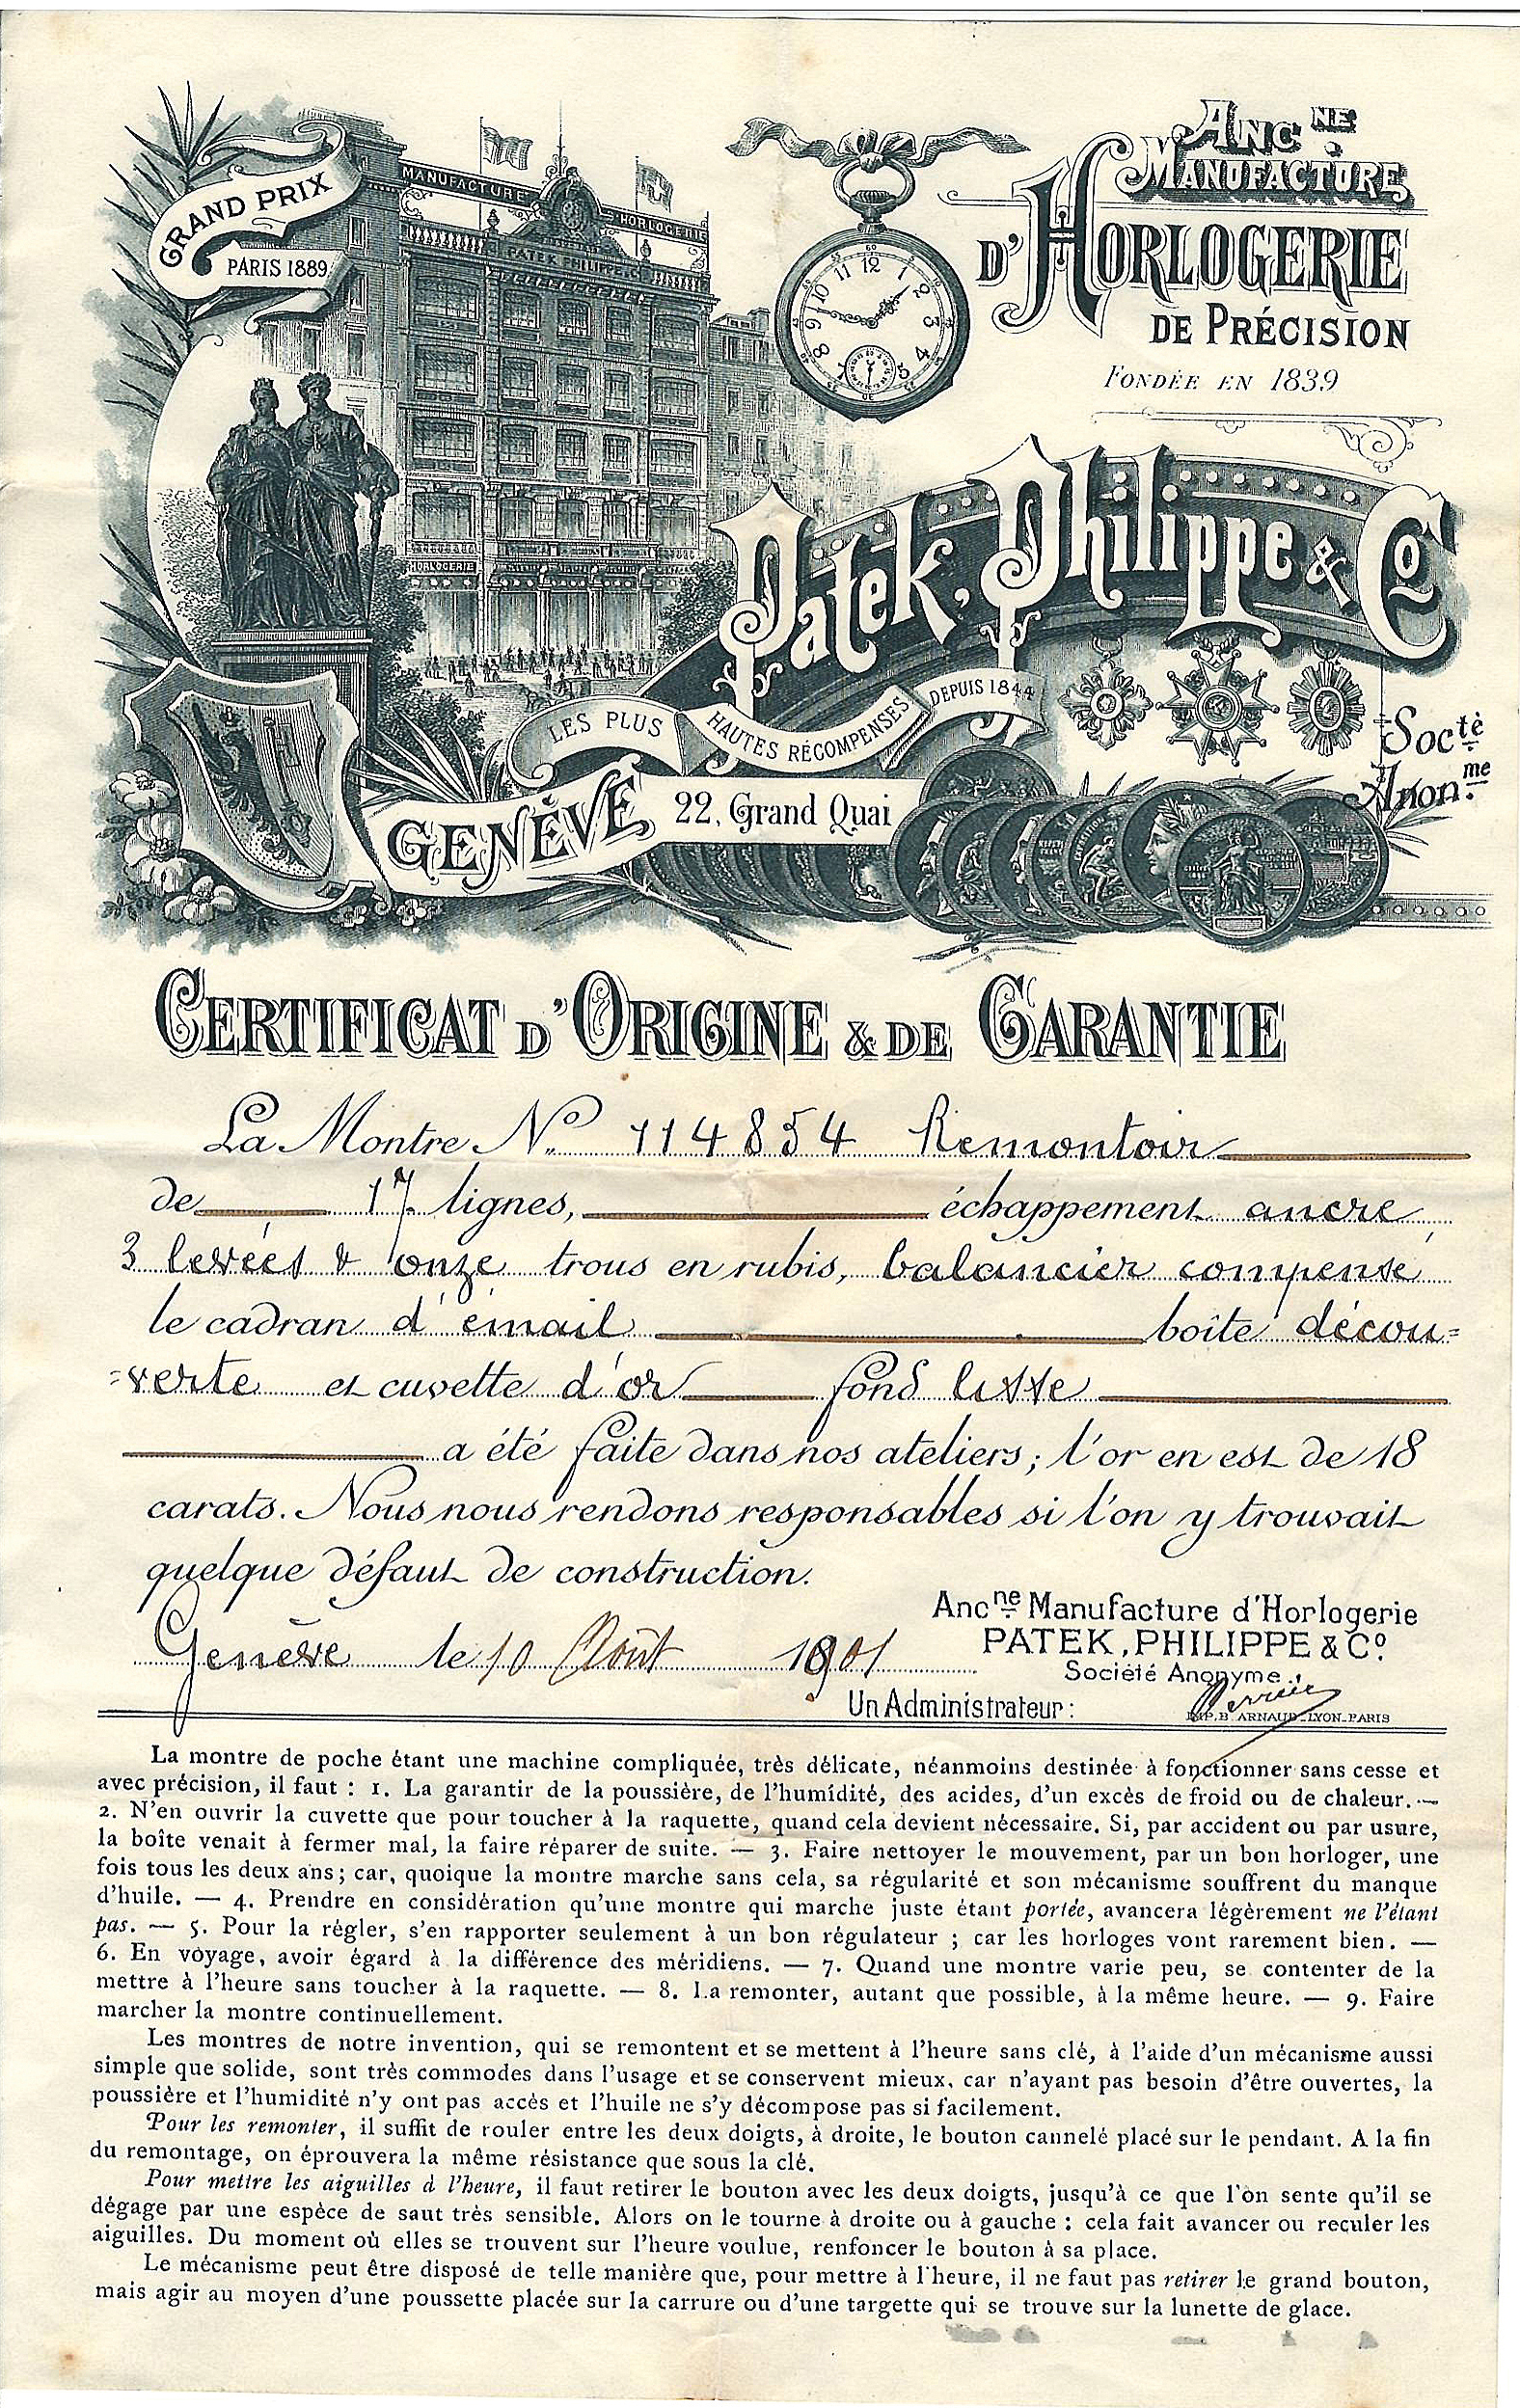 GRAND PRIX
PARIS 1889
MANUFACTURE HORLOGERIE
PATEK PHILIPPE & Cº
HORLOGERIE
ANCNE.
MANUFACTURE
D'HORLOGERIE
DE PRÉCISION
FONDÉE EN 1839
Patek, Philippe & Co
LES PLUS HAUTES RÉCOMPENSES DEPUIS 1844
Socté
Anonme.
GENÈVE 22, Grand Quai
CERTIFICAT D'ORIGINE & DE GARANTIE
La Montre No. 114854 Remontoir
de 17 lignes, échappement ancre,
3 levées & onze trous en rubis, balancier compensé
le cadran d'émail boîte décou=
=verte et cuvette d'or fond lisse
a été faite dans nos ateliers; l'or en est de 18
carats. Nous nous rendons responsables si l'on y trouvait
quelque défaut de construction.
Genève le 10 Août 1901
Ancne Manufacture d'Horlogerie
PATEK, PHILIPPE & Cº.
Société Anonyme.
Un Administrateur:
IMP. B. ARNAUD_LYON_PARIS
La montre de poche étant une machine compliquée, très délicate, néanmoins destinée à fonctionner sans cesse et
avec précision, il faut : 1. La garantir de la poussière, de l'humidité, des acides, d'un excès de froid ou de chaleur. —
2. N'en ouvrir la cuvette que pour toucher à la raquette, quand cela devient nécessaire. Si, par accident ou par usure,
la boîte venait à fermer mal, la faire réparer de suite. — 3. Faire nettoyer le mouvement, par un bon horloger, une
fois tous les deux ans; car, quoique la montre marche sans cela, sa régularité et son mécanisme souffrent du manque
d'huile. — 4. Prendre en considération qu'une montre qui marche juste étant portée, avancera légèrement ne l'étant
pas. — 5. Pour la régler, s'en rapporter seulement à un bon régulateur ; car les horloges vont rarement bien. —
6. En voyage, avoir égard à la différence des méridiens. — 7. Quand une montre varie peu, se contenter de la
mettre à l'heure sans toucher à la raquette. — 8. La remonter, autant que possible, à la même heure. — 9. Faire
marcher la montre continuellement.
Les montres de notre invention, qui se remontent et se mettent à l'heure sans clé, à l'aide d'un mécanisme aussi
simple que solide, sont très commodes dans l'usage et se conservent mieux, car n'ayant pas besoin d'être ouvertes, la
poussière et l'humidité n'y ont pas accès et l'huile ne s'y décompose pas si facilement.
Pour les remonter, il suffit de rouler entre les deux doigts, à droite, le bouton cannelé placé sur le pendant. A la fin
du remontage, on éprouvera la même résistance que sous la clé.
Pour mettre les aiguilles à l'heure, il faut retirer le bouton avec les deux doigts, jusqu'à ce que l'on sente qu'il se
dégage par une espèce de saut très sensible. Alors on le tourne à droite ou à gauche : cela fait avancer ou reculer les
aiguilles. Du moment où elles se trouvent sur l'heure voulue, renfoncer le bouton à sa place.
Le mécanisme peut être disposé de telle manière que, pour mettre à l'heure, il ne faut pas retirer le grand bouton,
mais agir au moyen d'une poussette placée sur la carrure ou d'une targette qui se trouve sur la lunette de glace.